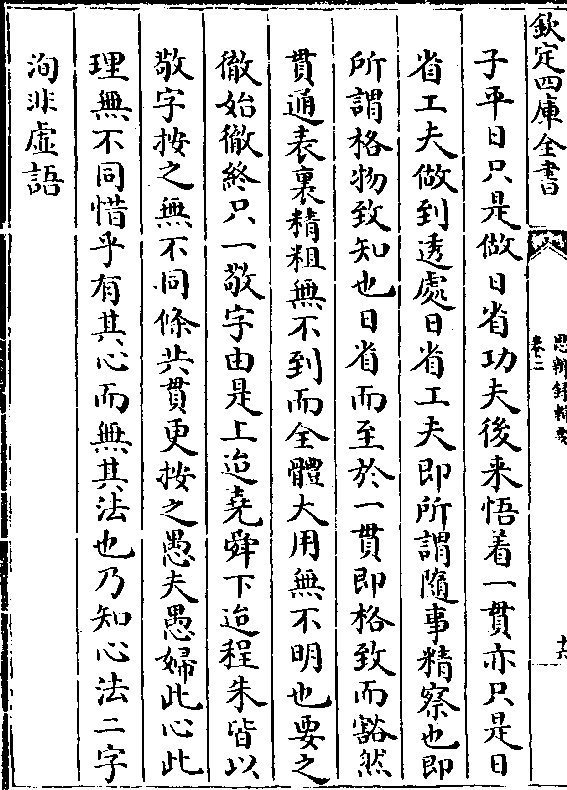 欽定四庫全書
思辨錄輯要
卷二
十六
子平日只是做日省功夫後来悟着一貫亦只是日
省工夫做到透處日省工夫即所謂隨事精察也即
所謂格物致知也日省而至於一貫即格致而豁然
貫通表裏精粗無不到而全體大用無不明也要之
徹始徹終只一敬字由是上迨堯舜下迨程朱皆以
敬字按之無不同條共貫更按之愚夫愚婦此心此
理無不同惜乎有其心而無其法也乃知心法二字
洵非虚語